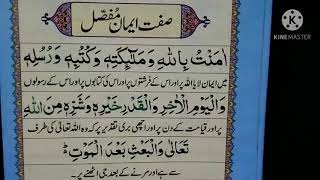 صفت ایمان مُفَصَّل
KINEMASTER
اٰمَنْتُ بِاللّٰهِ وَمَلٰٓئِكَتِهٖ وَكُتُبِهٖ وَرُسُلِهٖ
میں ایمان لایا اللہ پر اور اس کے فرشتوں پر اور اس کی کتابوں پر اور اس کے رسولوں
وَالْيَوْمِ الْاٰخِرِ وَالْقَدْرِ خَيْرِهٖ وَشَرِّهٖ مِنَ اللّٰهِ
پر اور قیامت کے دن پر اور اچھی بری تقدیر پر کہ وہ اللہ تعالیٰ کی طرف
تَعَالٰى وَالْبَعْثِ بَعْدَ الْمَوْتِ ؕ
سے ہے اور مرنے کے بعد جی اٹھنے پر۔